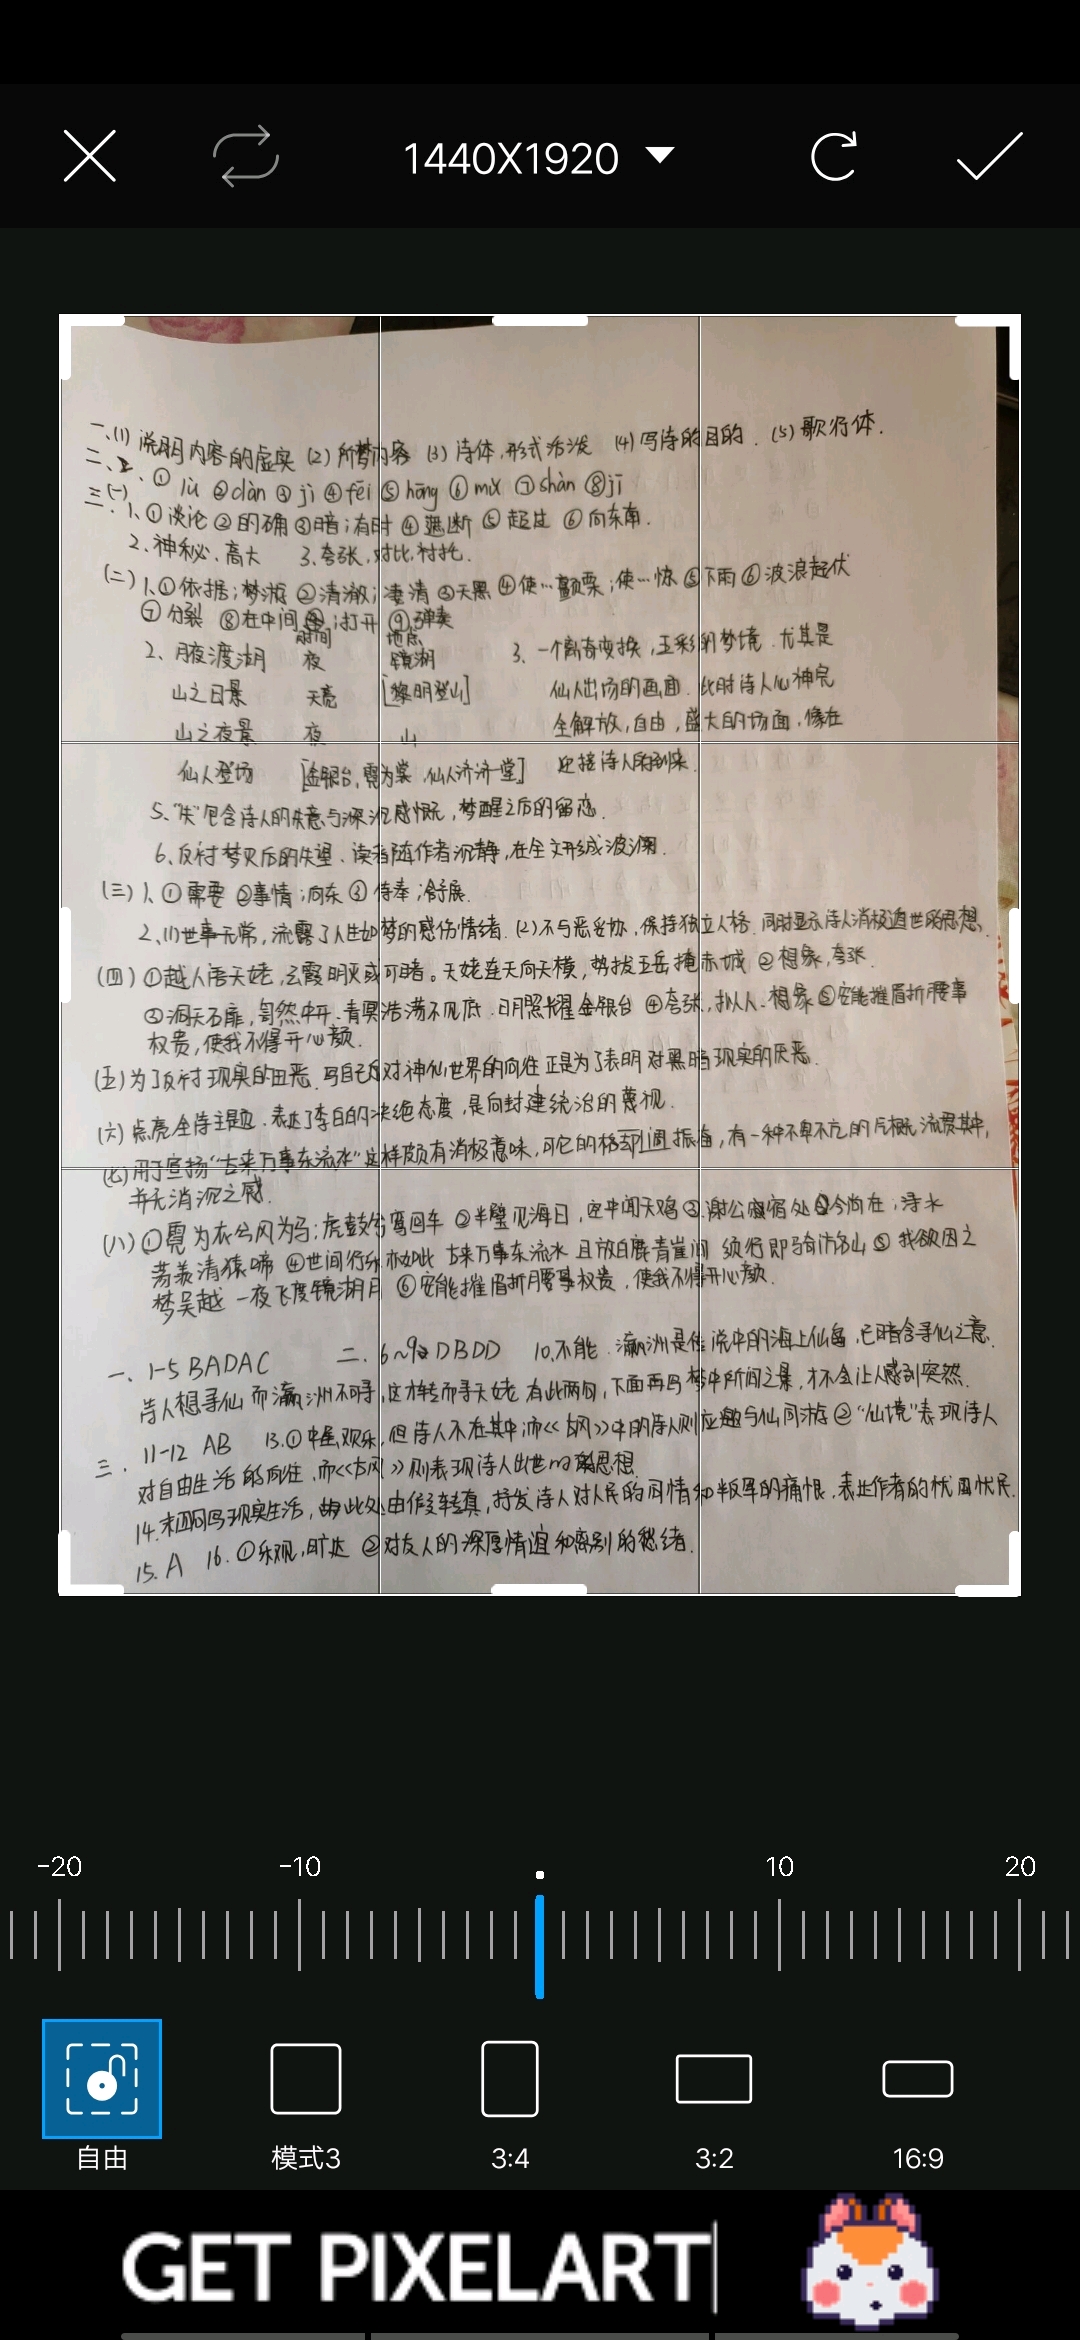 1440X1920
一、(1) 说明内容的虚实 (2) 所梦内容 (3) 诗体,形式活泼 (4) 写诗的目的. (5) 歌行体.
二、① lǜ ②dàn ③ jì ④fēi ⑤hōng ⑥ mù ⑦shàn ⑧jī
三.(一) 1、①谈论 ②的确 ③暗;有时 ④遮断 ⑤超过 ⑥向东南.
2、神秘、高大 3、夸张,对比,衬托.
(二) 1、①依据;梦游 ②清澈;凄清 ③天黑 ④使…颤栗;使…惊 ⑤下雨 ⑥波浪起伏
⑦分裂 ⑧在中间;打开 ⑨弹奏
时间 地点
2、月夜渡湖 夜 镜湖 3、一个离奇变换,五彩的梦境.尤其是
山之日景 天亮 [黎明登山] 仙人出场的画面.此时诗人心神完
山之夜景 夜 山 全解放,自由,盛大的场面,像在
仙人登场 [金银台,霓为裳,仙人济济一堂] 迎接诗人的到来.
5、"失"包含诗人的失意与深沉感慨,梦醒之后的留恋.
6、反衬梦灭后的失望、读者随作者沉静,在全文形成波澜.
(三) 1、①需要 ②事情;向东 ③侍奉;舒展.
2、(1)世事无常,流露了人生如梦的感伤情绪.(2)不与恶妥协,保持独立人格.同时显示诗人消极遁世的思想.
(四) ①越人语天姥,云霞明灭或可睹。天姥连天向天横,势拔五岳掩赤城 ②想象,夸张.
③洞天石扉,訇然中开.青冥浩荡不见底.日月照耀金银台 ④夸张,拟人、想象 ⑤安能摧眉折腰事
权贵,使我不得开心颜.
(五)为了反衬现实的丑恶.写自己对神仙世界的向往正是为了表明对黑暗现实的厌恶.
(六)点亮全诗主题.表达了李白的决绝态度,是向封建统治的蔑视.
(七)用于宣扬"古来万事东流水"这样颇有消极意味,可它的格却通振奋,有一种不卑不亢的气概流贯其中,
并无消沉之感.
(八)①霓为衣兮风为马;虎鼓瑟兮鸾回车 ②半壁见海日,空中闻天鸡 ③谢公宿处今尚在;渌水
荡漾清猿啼 ④世间行乐亦如此 古来万事东流水 且放白鹿青崖间 须行即骑访名山 ⑤我欲因之
梦吴越 一夜飞度镜湖月 ⑥安能摧眉折腰事权贵,使我不得开心颜.
一、1-5 BADAC 二、6~9 DBDD 10.不能.瀛洲是传说中的海上仙岛,已暗含寻仙之意.
诗人想寻仙而瀛洲不可寻,这才转而寻天姥.有此两句,下面再写梦中所闻之景,才不会让人感到突然.
三. 11-12 AB 13.①中虽欢乐,但诗人不在其中;而《古风》中的诗人则应邀与仙同游 ②"仙境"表现诗人
对自由生活的向往,而《古风》则表现诗人出世的思想.
14.末四句写现实生活,由此处由仙转真,抒发诗人对人民的同情和叛军的痛恨.表达作者的忧国忧民.
15.A 16.①乐观,旷达 ②对友人的深厚情谊和离别的愁绪.
-20 -10 10 20
自由 模式3 3:4 3:2 16:9
GET PIXELART